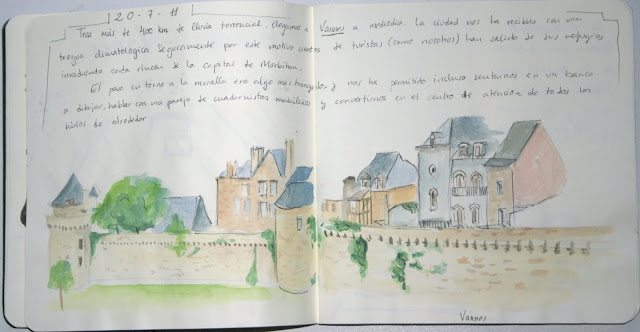 20-7-11
Tras más de 400 km de lluvia torrencial, llegamos a Vannes a mediodía. La ciudad nos ha recibido con una
tregua climatológica. Seguramente por este motivo cientos de turistas (como nosotros) han salido de sus refugios
invadiendo cada rincón de la capital de Morbihan.
El paseo en torno a la muralla era algo más tranquilo, y nos ha permitido incluso sentarnos en un banco
a dibujar, hablar con una pareja de cuadernistas y convertirnos en el centro de atención de todos los
niños de alrededor
Vannes